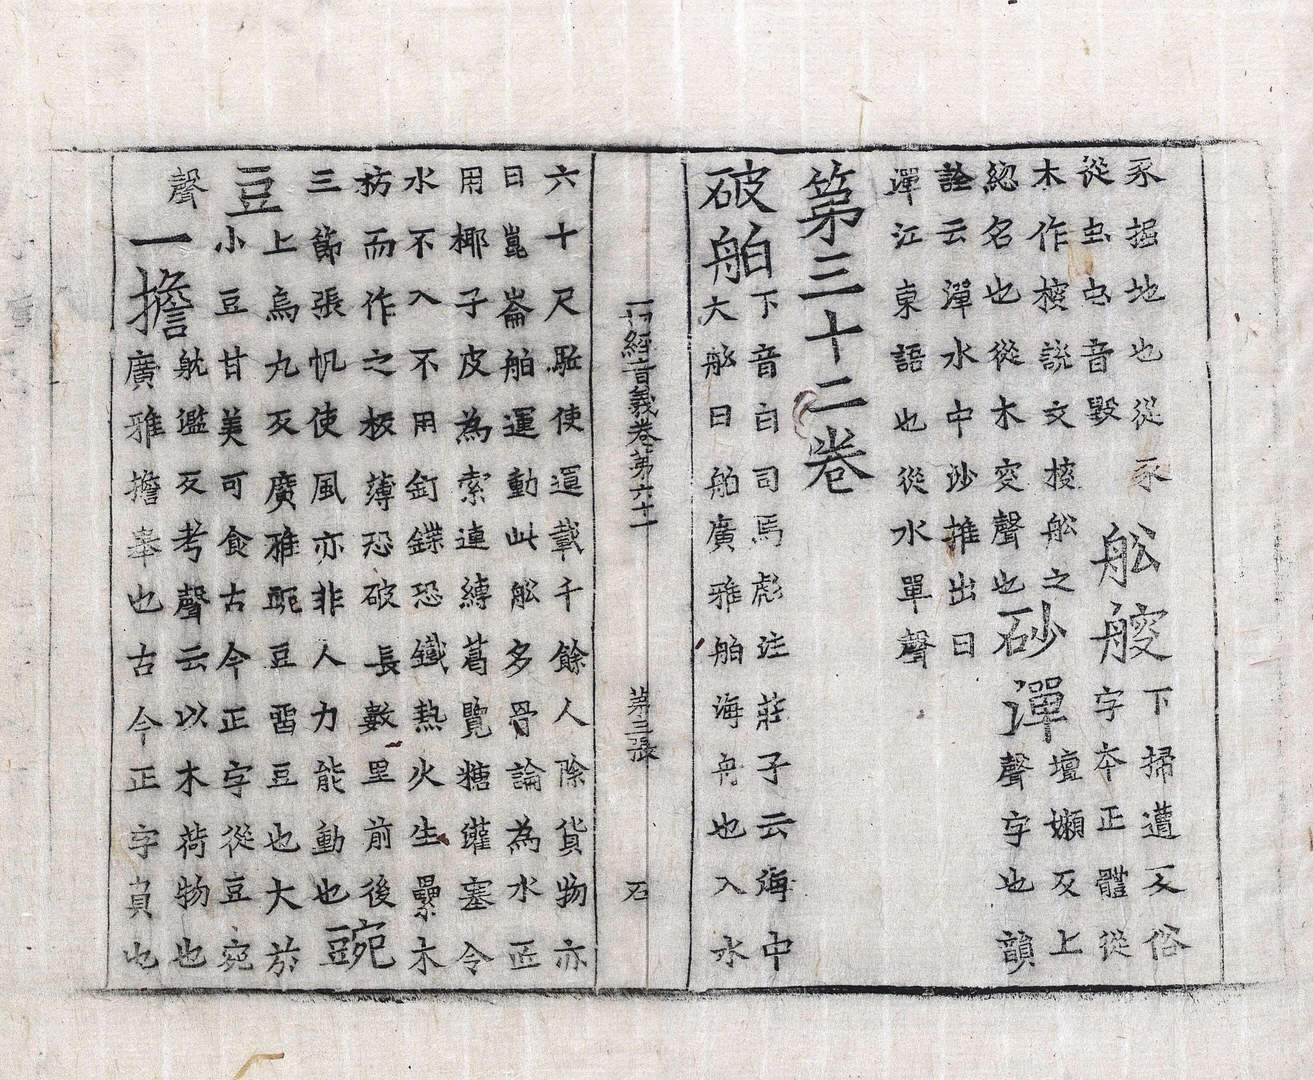 豕掘地也從豕
從虫虫音毀
舩艘
下掃遭反俗
字夲正體從
木作㮴說文㮴舩之
緫名也從木叜聲也
砂潬
壇嬾反上
聲字也韻
詮云潬水中沙推出曰
潬江東語也從水單聲
第三十二卷
破舶
下音白司馬彪注莊子云海中
大舩曰舶廣雅舶海舟也入水
一切經音義卷第六十一 第三張 石
六十尺駈使運載千餘人除貨物亦
曰崑崙舶運動此舩多骨論為水匠
用椰子皮為索連縛葛覽糖灌塞令
水不入不用釘鍱恐鐵熱火生纍木
枋而作之板薄恐破長數里前後
三節張帆使風亦非人力能動也
豌豆
上烏丸反廣雅豍豆䝁豆也大於
小豆甘美可食古今正字從豆宛
聲
一擔
躭濫反考聲云以木荷物也
廣雅擔舉也古今正字負也